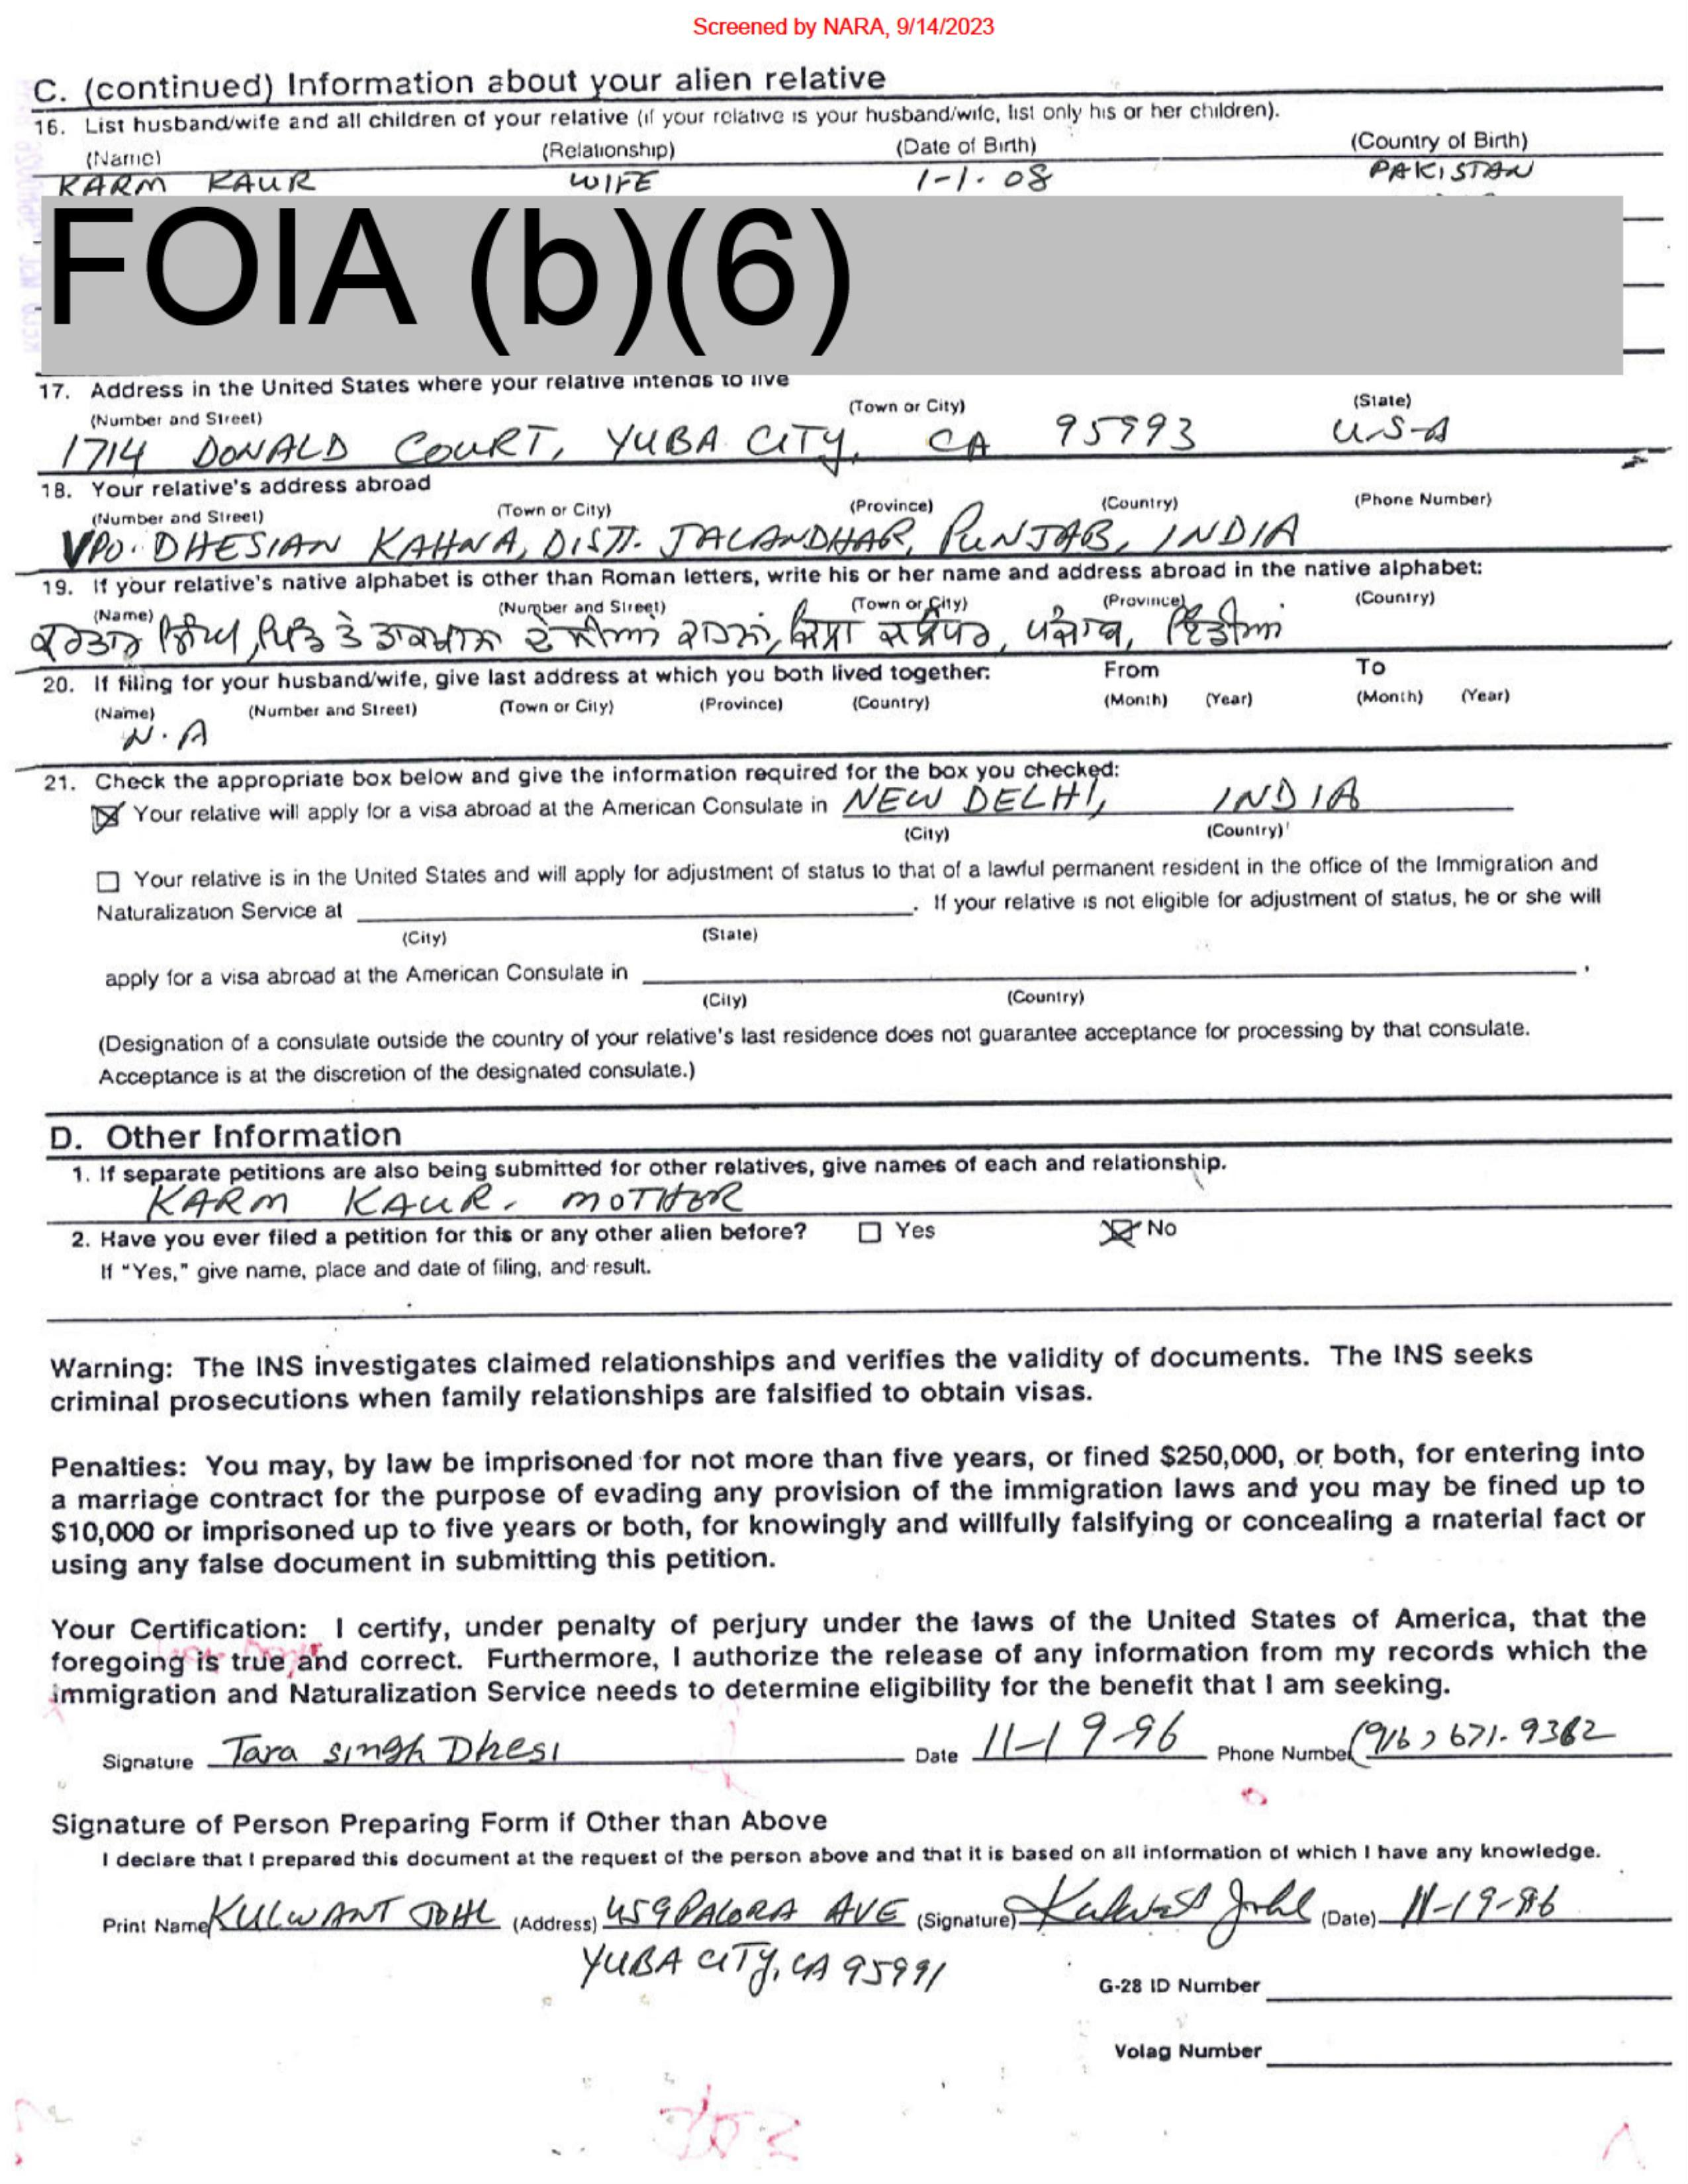 Screened by NARA, 9/14/2023
C. (continued) Information about your alien relative
16. List husband/wife and all children of your relative (if your relative is your husband/wife, list only his or her children).
(Name) (Relationship) (Date of Birth) (Country of Birth)
KARM KAUR WIFE 1-1-08 PAKISTAN
FOIA (b)(6)
17. Address in the United States where your relative intends to live
(Number and Street) (Town or City) (State)
1714 DONALD COURT, YUBA CITY, CA 95993 U-S-A
18. Your relative's address abroad
(Number and Street) (Town or City) (Province) (Country) (Phone Number)
VPO. DHESIAN KAHNA, DISTT. JALANDHAR, PUNJAB, INDIA
19. If your relative's native alphabet is other than Roman letters, write his or her name and address abroad in the native alphabet:
(Name) (Number and Street) (Town or City) (Province) (Country)
ਸਿੰਘ, ਪਿੰਡ ਤੇ ਡਾਕਖਾਨ ਪੰਜਾਬ,
20. If filing for your husband/wife, give last address at which you both lived together: From To
(Name) (Number and Street) (Town or City) (Province) (Country) (Month) (Year) (Month) (Year)
N.A
21. Check the appropriate box below and give the information required for the box you checked:
Your relative will apply for a visa abroad at the American Consulate in NEW DELHI, INDIA
(City) (Country)
Your relative is in the United States and will apply for adjustment of status to that of a lawful permanent resident in the office of the Immigration and
Naturalization Service at . If your relative is not eligible for adjustment of status, he or she will
(City) (State)
apply for a visa abroad at the American Consulate in .
(City) (Country)
(Designation of a consulate outside the country of your relative's last residence does not guarantee acceptance for processing by that consulate.
Acceptance is at the discretion of the designated consulate.)
D. Other Information
1. If separate petitions are also being submitted for other relatives, give names of each and relationship.
KARM KAUR. MOTHER
2. Have you ever filed a petition for this or any other alien before? Yes No
If "Yes," give name, place and date of filing, and result.
Warning: The INS investigates claimed relationships and verifies the validity of documents. The INS seeks
criminal prosecutions when family relationships are falsified to obtain visas.
Penalties: You may, by law be imprisoned for not more than five years, or fined $250,000, or both, for entering into
a marriage contract for the purpose of evading any provision of the immigration laws and you may be fined up to
$10,000 or imprisoned up to five years or both, for knowingly and willfully falsifying or concealing a material fact or
using any false document in submitting this petition.
Your Certification: I certify, under penalty of perjury under the laws of the United States of America, that the
foregoing is true and correct. Furthermore, I authorize the release of any information from my records which the
immigration and Naturalization Service needs to determine eligibility for the benefit that I am seeking.
Signature Tara singh Dhesi Date 11-19-96 Phone Number (916) 671-9362
Signature of Person Preparing Form if Other than Above
I declare that I prepared this document at the request of the person above and that it is based on all information of which I have any knowledge.
Print Name KULWANT JOHL (Address) 459 PALORA AVE (Signature) Kulwant Johl (Date) 11-19-96
YUBA CITY, CA 95991
G-28 ID Number
Volag Number